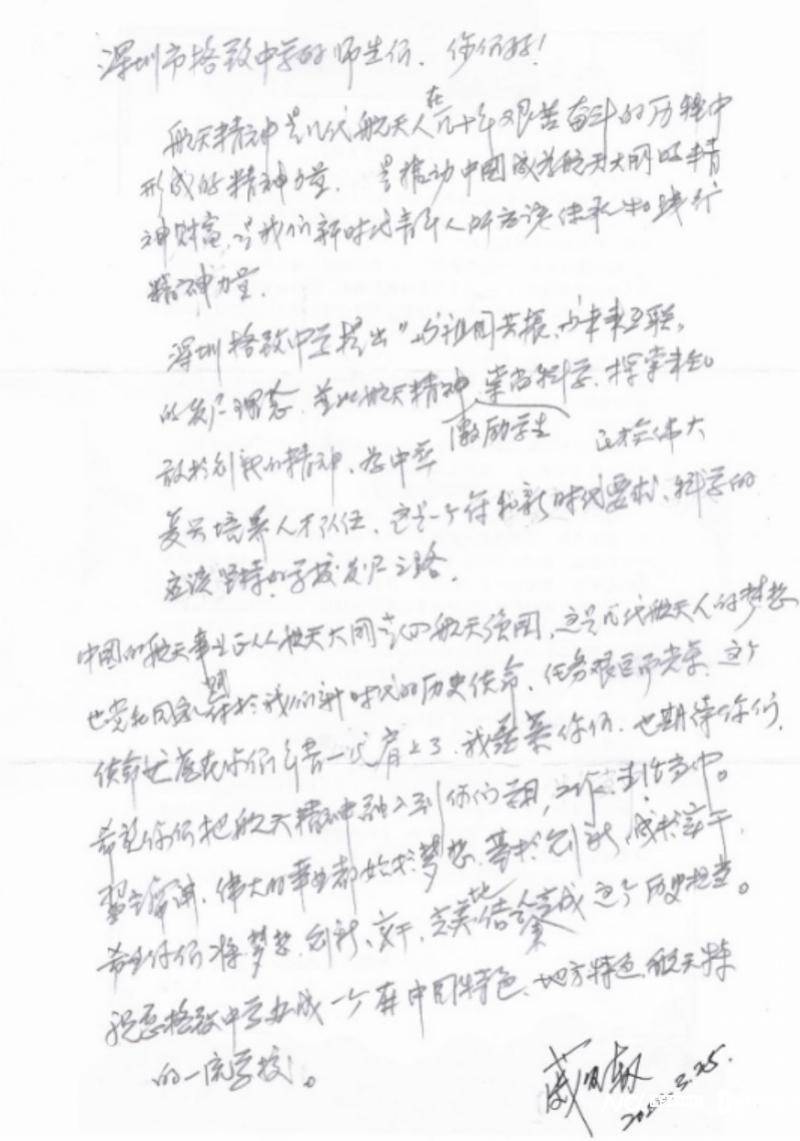 深圳市格致中学的师生们，你们好！
航天精神是几代航天人在几十年艰苦奋斗的历程中
形成的精神力量，是推动中国成为航天大国的精
神财富，是我们新时代青年人所应该传承和践行
精神力量。
深圳格致中学提出"与祖国共振、与未来互联"
的发展理念，航天精神崇尚科学、探索未知
敢于创新的精神，激励学生为中华正才会伟大
复兴培养人才队伍，这是一个符和新时代要求、科学的
应该坚持的学校发展之路。
中国的航天事业正从航天大国迈向航天强国，这是几代航天人的梦想
也党和国家赋于我们新时代的历史使命，任务艰巨而光荣，这个
使命就落在你们年青一代肩上了，我羡慕你们，也期待你们，
希望你们把航天精神融入到你们学习，工作、生活当中。
伟大的事业都始于梦想，基于创新，成于实干，
希望你们将梦想、创新、实干，完美地结合完成这个历史担当。
祝愿格致中学办成一个有中国特色、地方特色、航天特
的一流学校。
戚发轫
3.25.